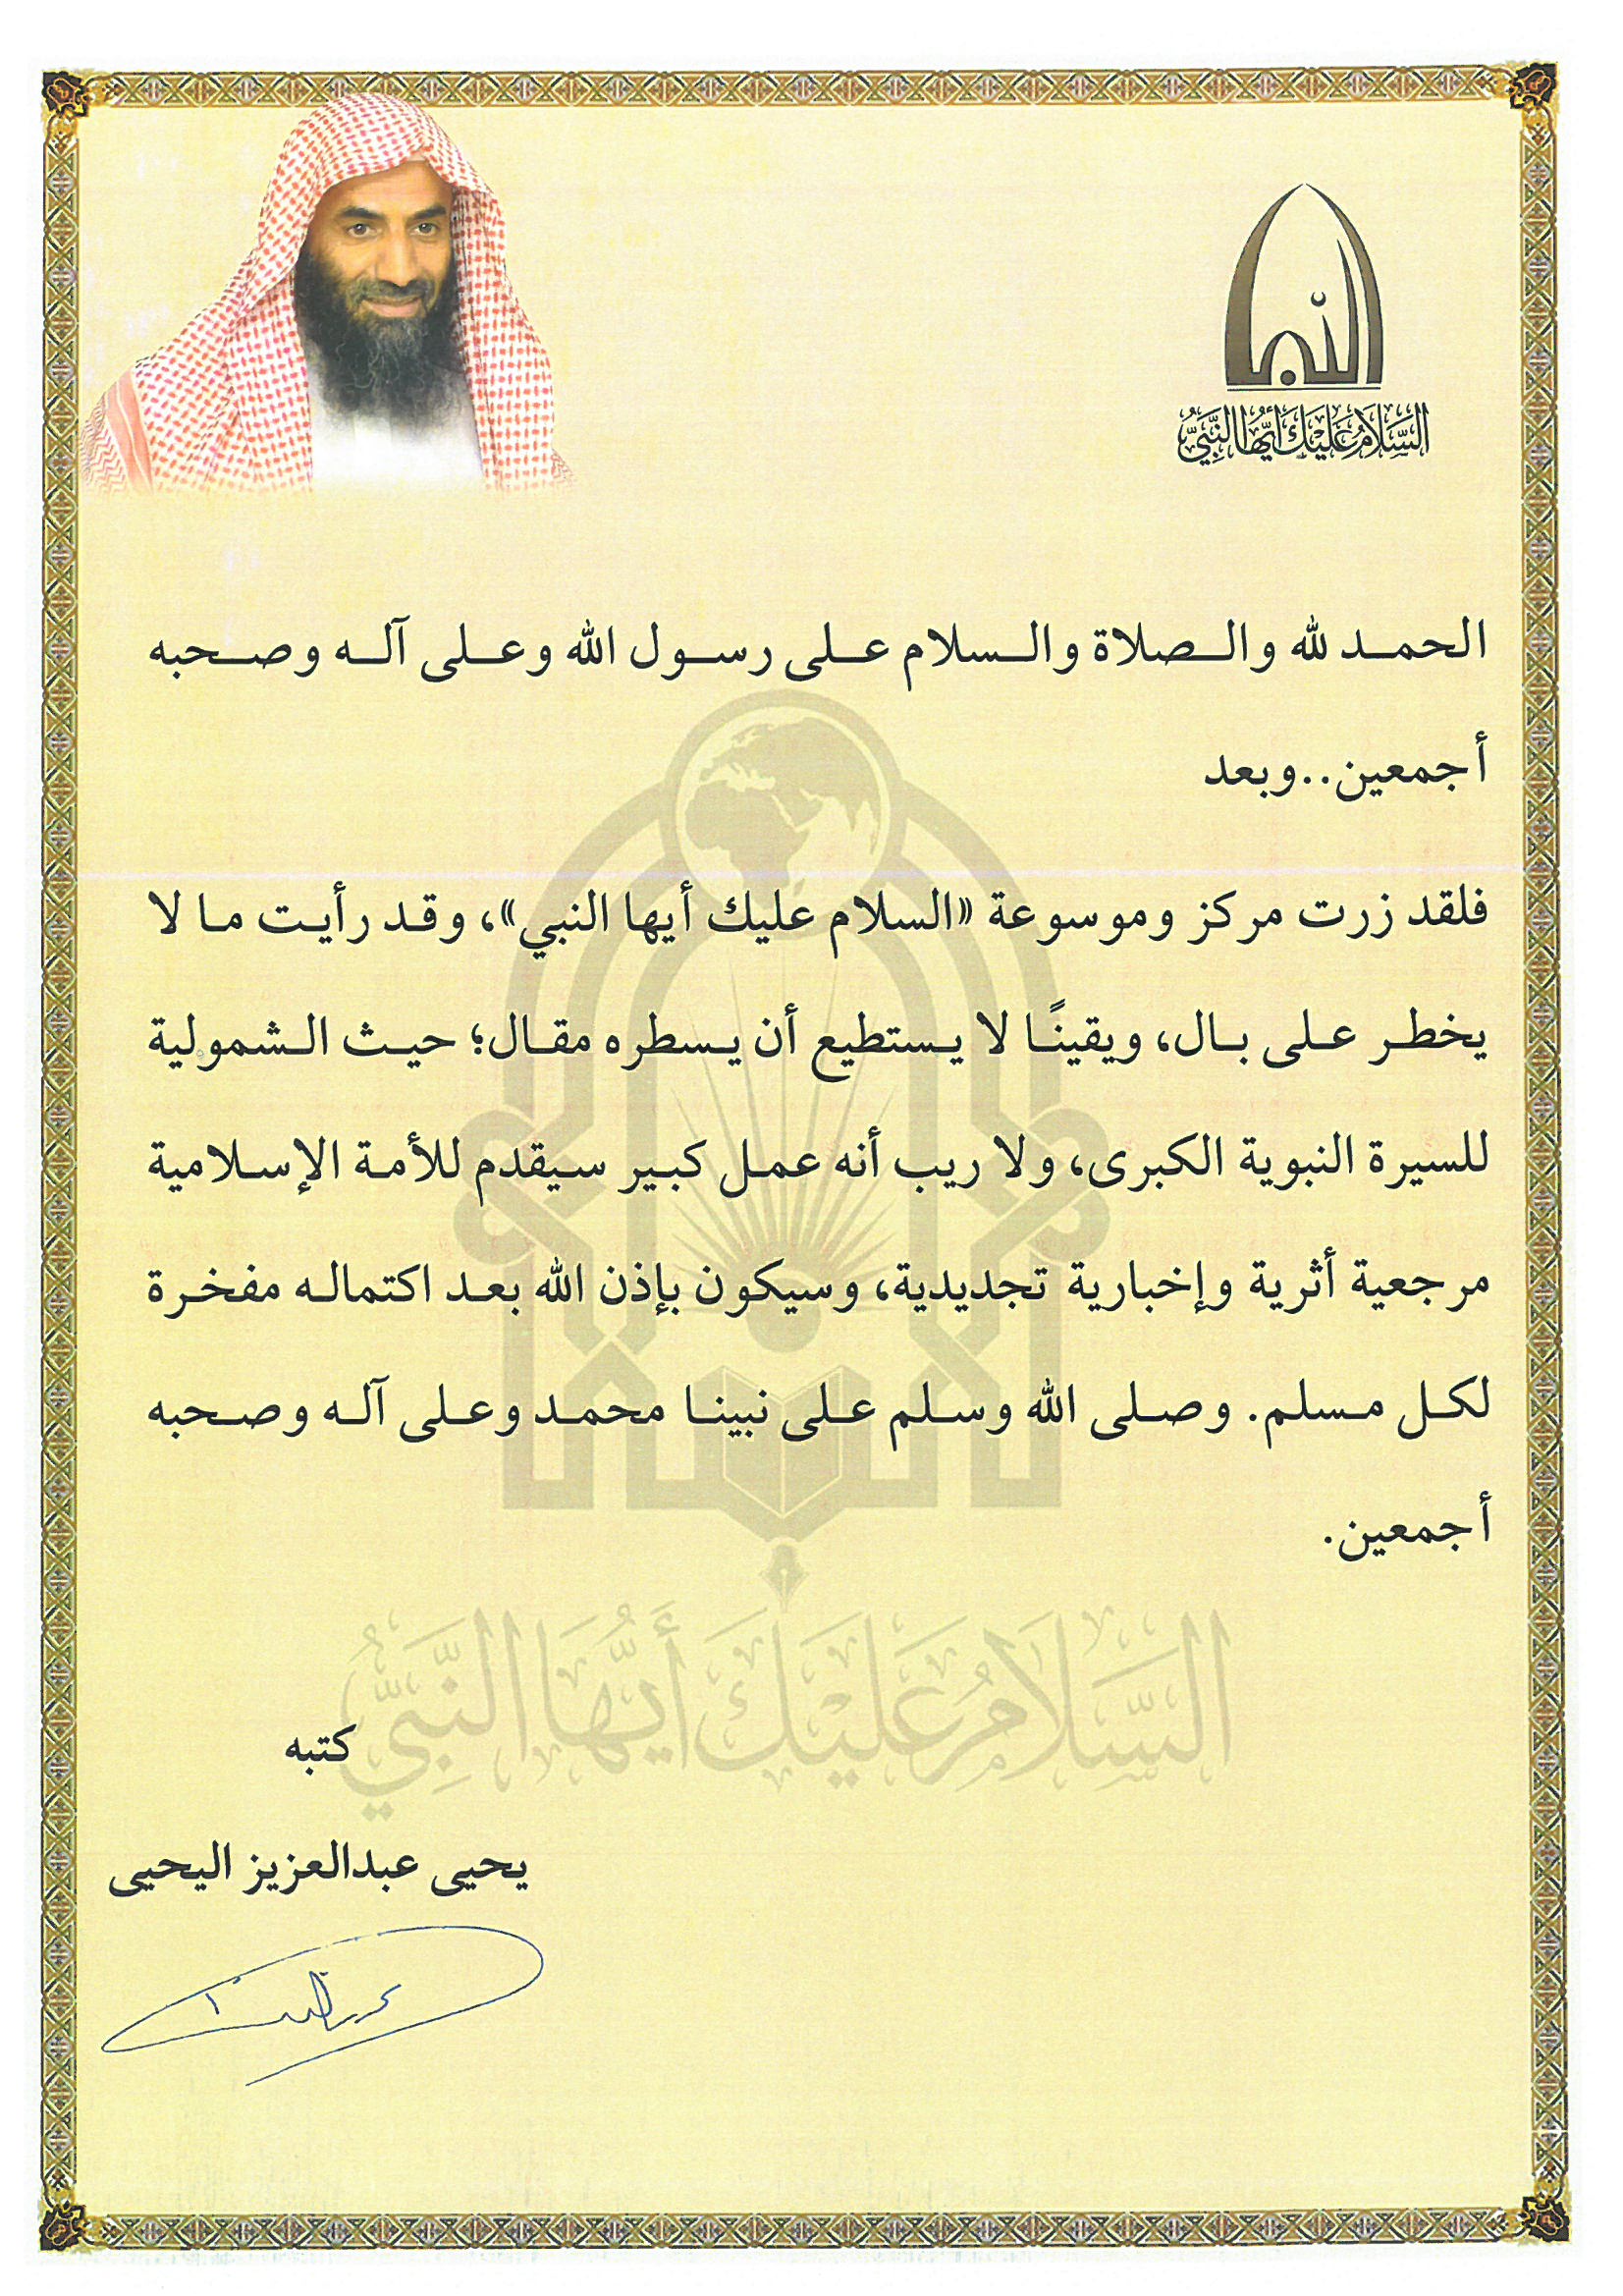 السَّلَامُ عَلَيْكَ أَيُّهَا النَّبِيُّ
الحمد لله والصلاة والسلام على رسول الله وعلى آله وصحبه
أجمعين..وبعد
فلقد زرت مركز وموسوعة «السلام عليك أيها النبي»، وقد رأيت ما لا
يخطر على بال، ويقينًا لا يستطيع أن يسطره مقال؛ حيث الشمولية
للسيرة النبوية الكبرى، ولا ريب أنه عمل كبير سيقدم للأمة الإسلامية
مرجعية أثرية وإخبارية تجديدية، وسيكون بإذن الله بعد اكتماله مفخرة
لكل مسلم. وصلى الله وسلم على نبينا محمد وعلى آله وصحبه
أجمعين.
السَّلَامُ عَلَيْكَ أَيُّهَا النَّبِيُّ
كتبه
يحيى عبدالعزيز اليحيى